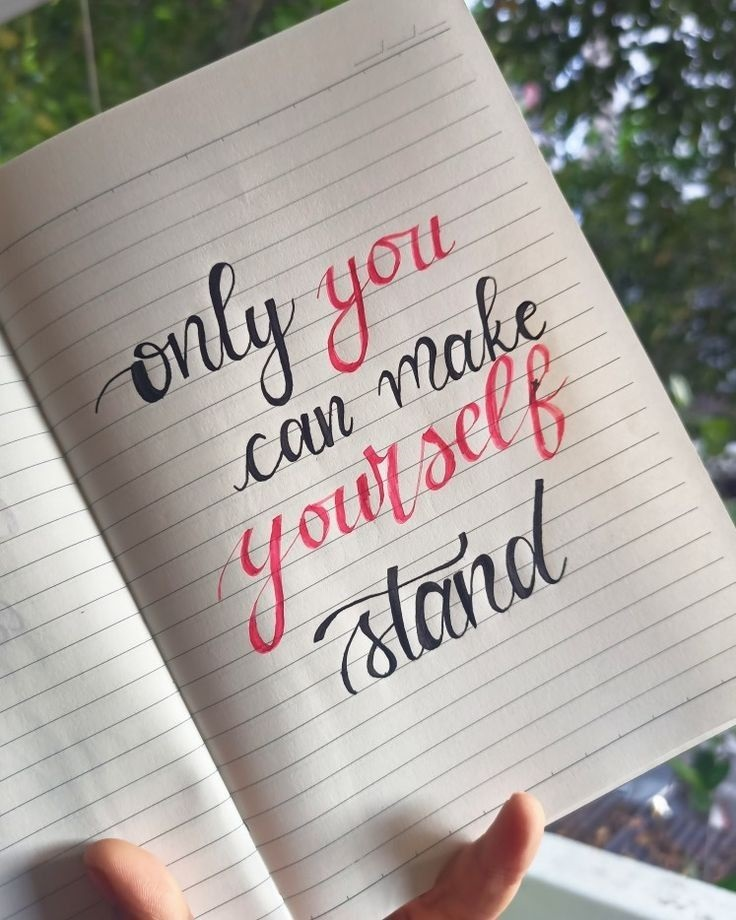 only you
can make
yourself
stand